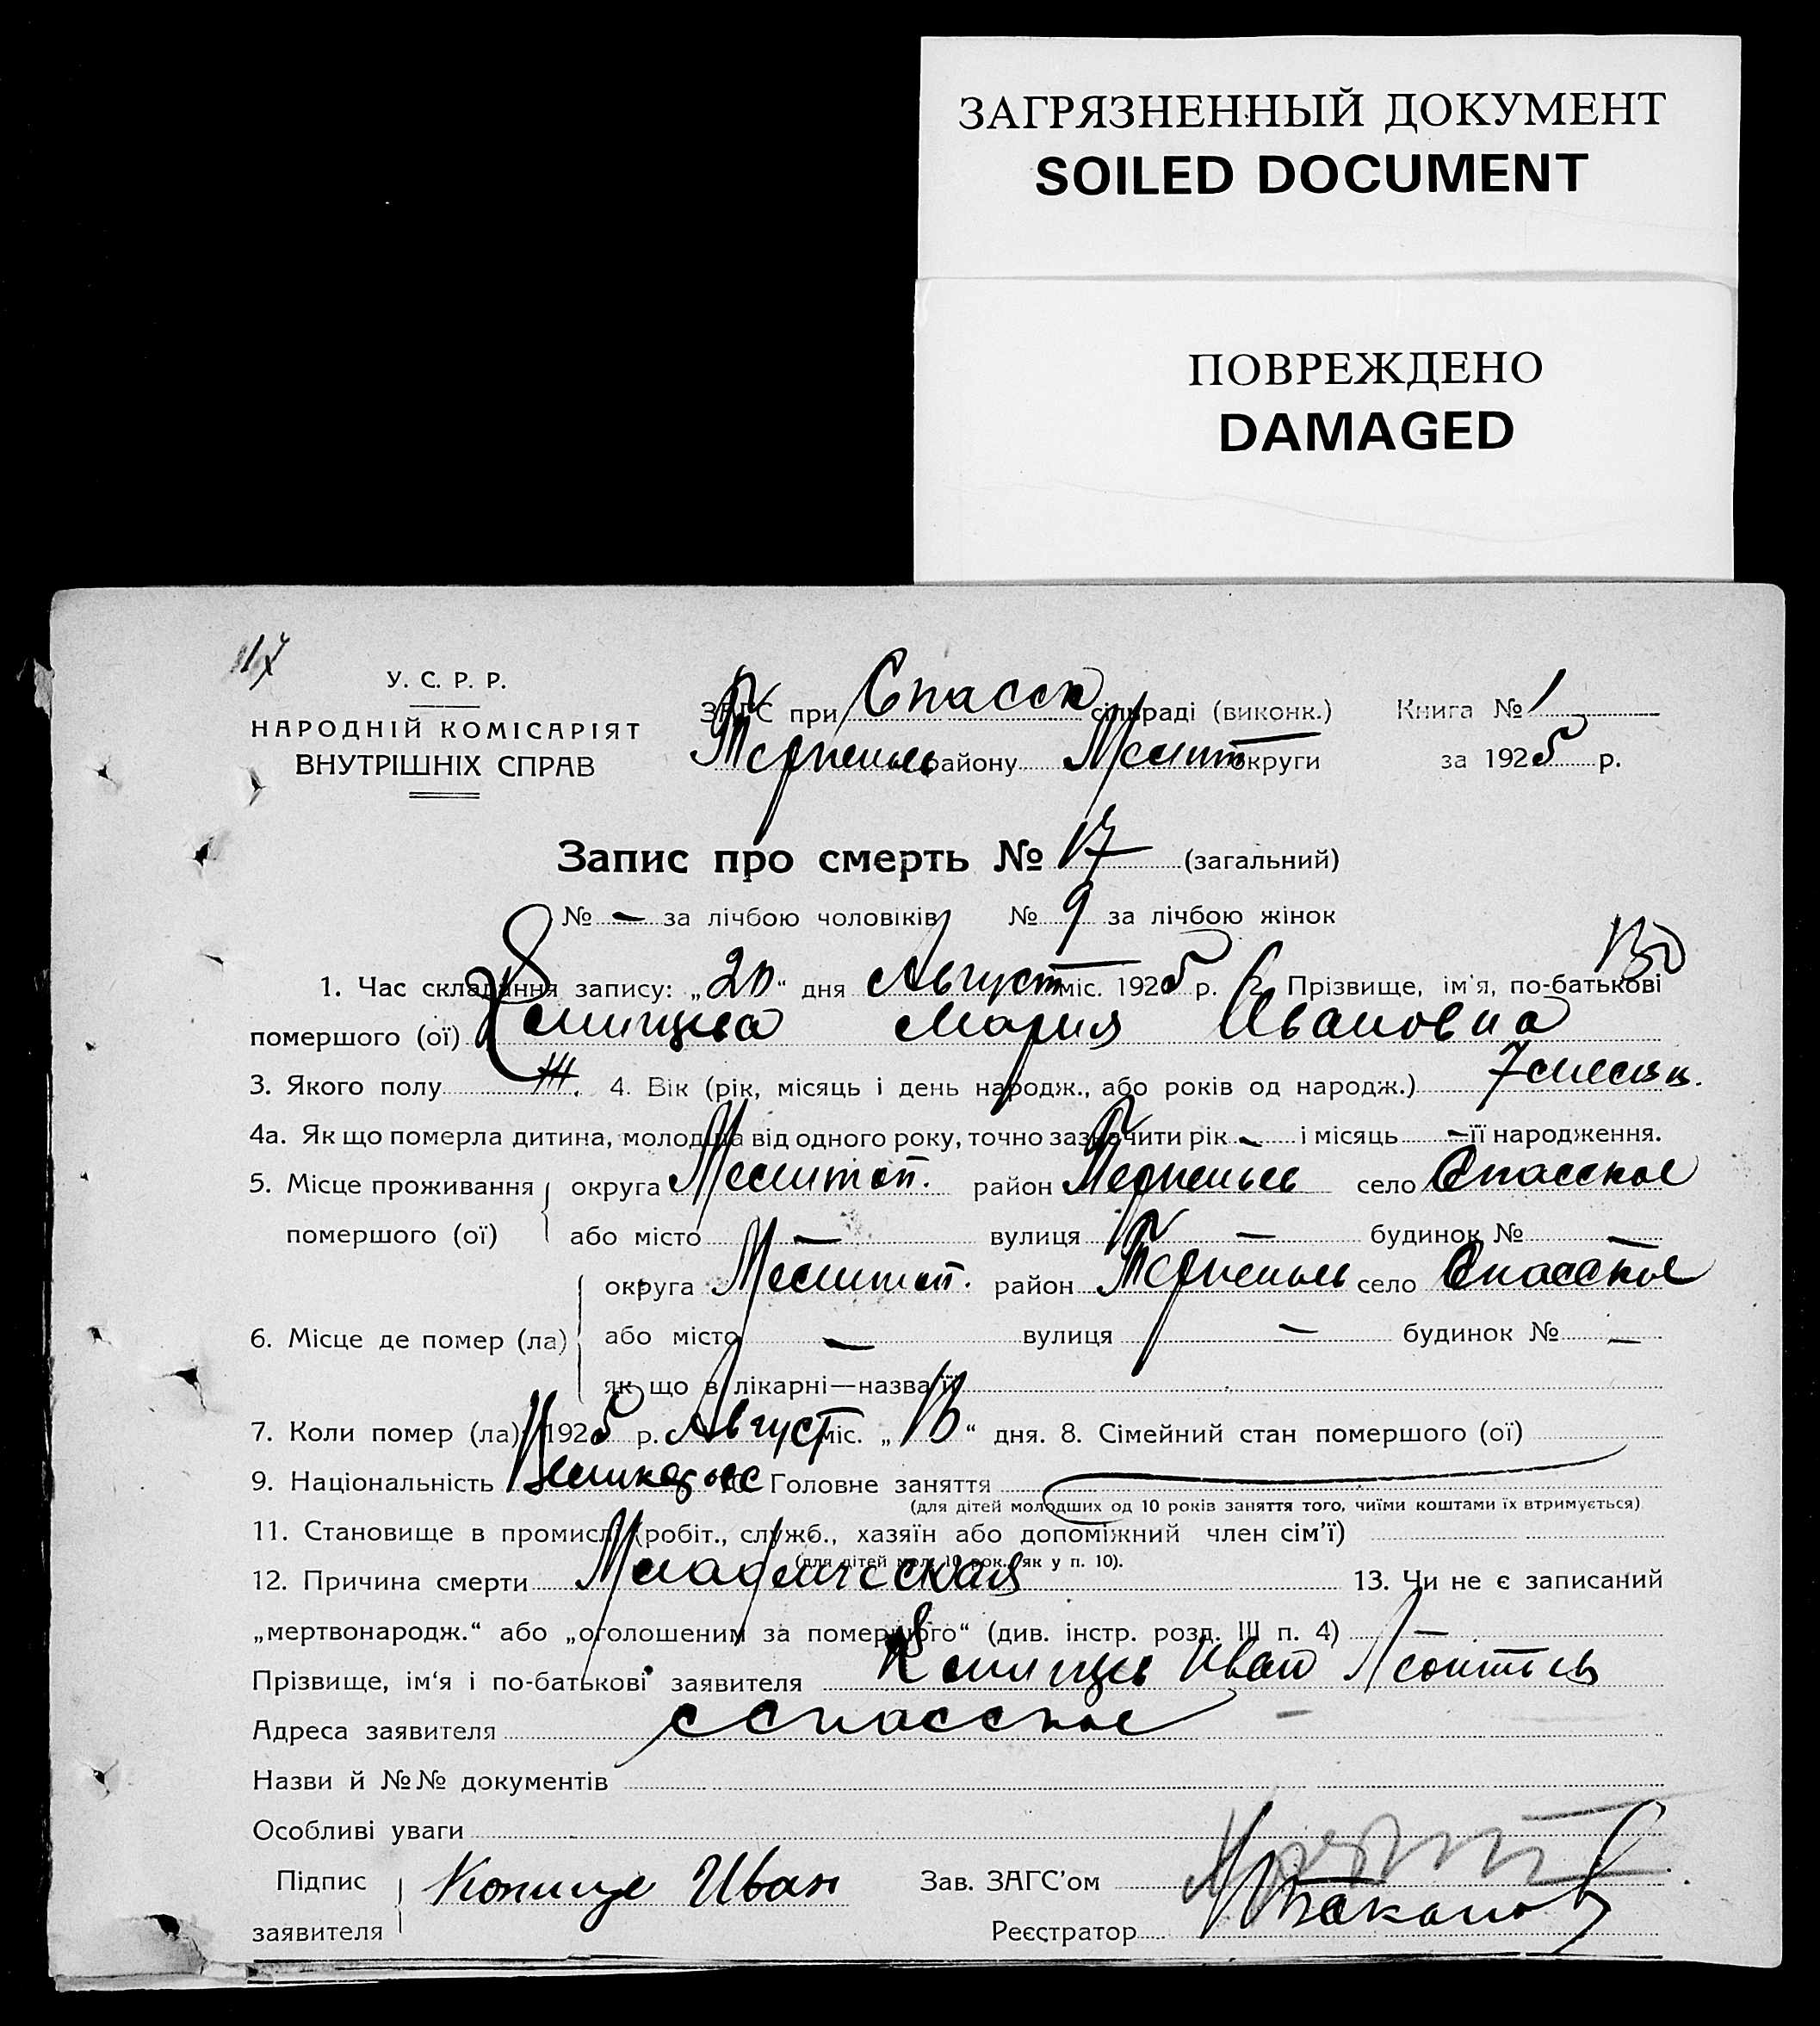 ЗАГРЯЗНЕННЫЙ ДОКУМЕНТ
SOILED DOCUMENT
ПОВРЕЖДЕНО
DAMAGED
17
У. С. Р. Р.
НАРОДНІЙ КОМІСАРІЯТ
ВНУТРІШНІХ СПРАВ
ЗАГС при Спасск сільраді (виконк.) Книга № 1
району Мелит округи за 1925 р.
Запис про смерть № 17 (загальний)
№ — за лічбою чоловіків № 9 за лічбою жінок
1. Час складання запису: „20“ дня Август міс. 1925 р. 2. Прізвище, ім'я, по-батькові
помершого (ої) Мария Ивановна
3. Якого полу 4. Вік (рік, місяць і день народж., або років од народж.) 7 месяц.
4а. Як що померла дитина, молодша від одного року, точно зазначити рік — і місяць — її народження.
5. Місце проживання округа Мелитоп. район село Спасское
помершого (ої) або місто — вулиця — будинок № —
округа Мелитоп. район село Спасское
6. Місце де помер (ла) або місто — вулиця — будинок № —
як що в лікарні—назва її
7. Коли помер (ла): 1925 р. Август міс. „ “ дня. 8. Сімейний стан помершого (ої)
9. Національність 10. Головне заняття
(для дітей молодших од 10 років заняття того, чиїми коштами їх втримується)
11. Становище в промислі (робіт., служб., хазяїн або допоміжний член сім'ї)
(для дітей мол. 10 рок., як у п. 10).
12. Причина смерти 13. Чи не є записаний
„мертвонародж.“ або „оголошеним за померлого“ (див. інстр. розд. III п. 4) —
Прізвище, ім'я і по-батькові заявителя Иван
Адреса заявителя с Спасское
Назви й №№ документів
Особливі уваги
Підпис Иван Зав. ЗАГС'ом
заявителя Реєстратор